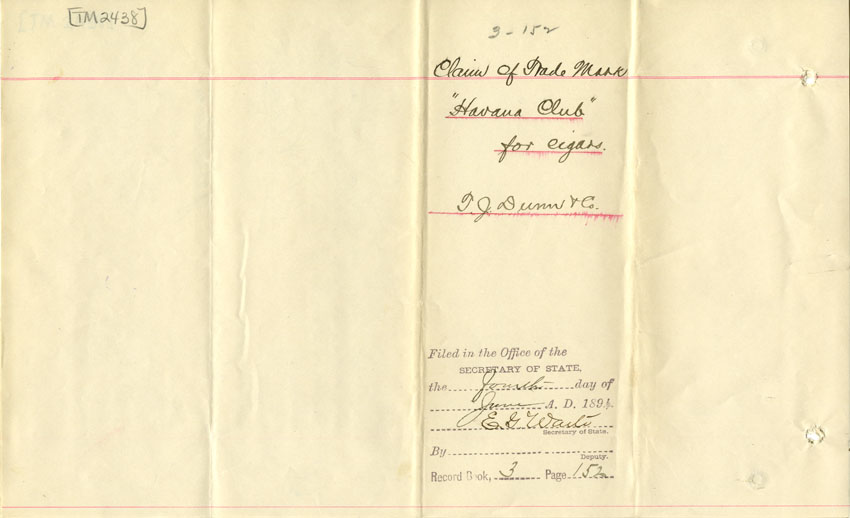 [TM2438]
3-152
Claim of Trade Mark
"Havana Club"
for cigars.
T. J. Dunn & Co.
Filed in the Office of the
SECRETARY OF STATE,
the fourth day of
June A. D. 1891.
E. G. Waite
Secretary of State.
By
Deputy.
Record Book, 3 Page 152